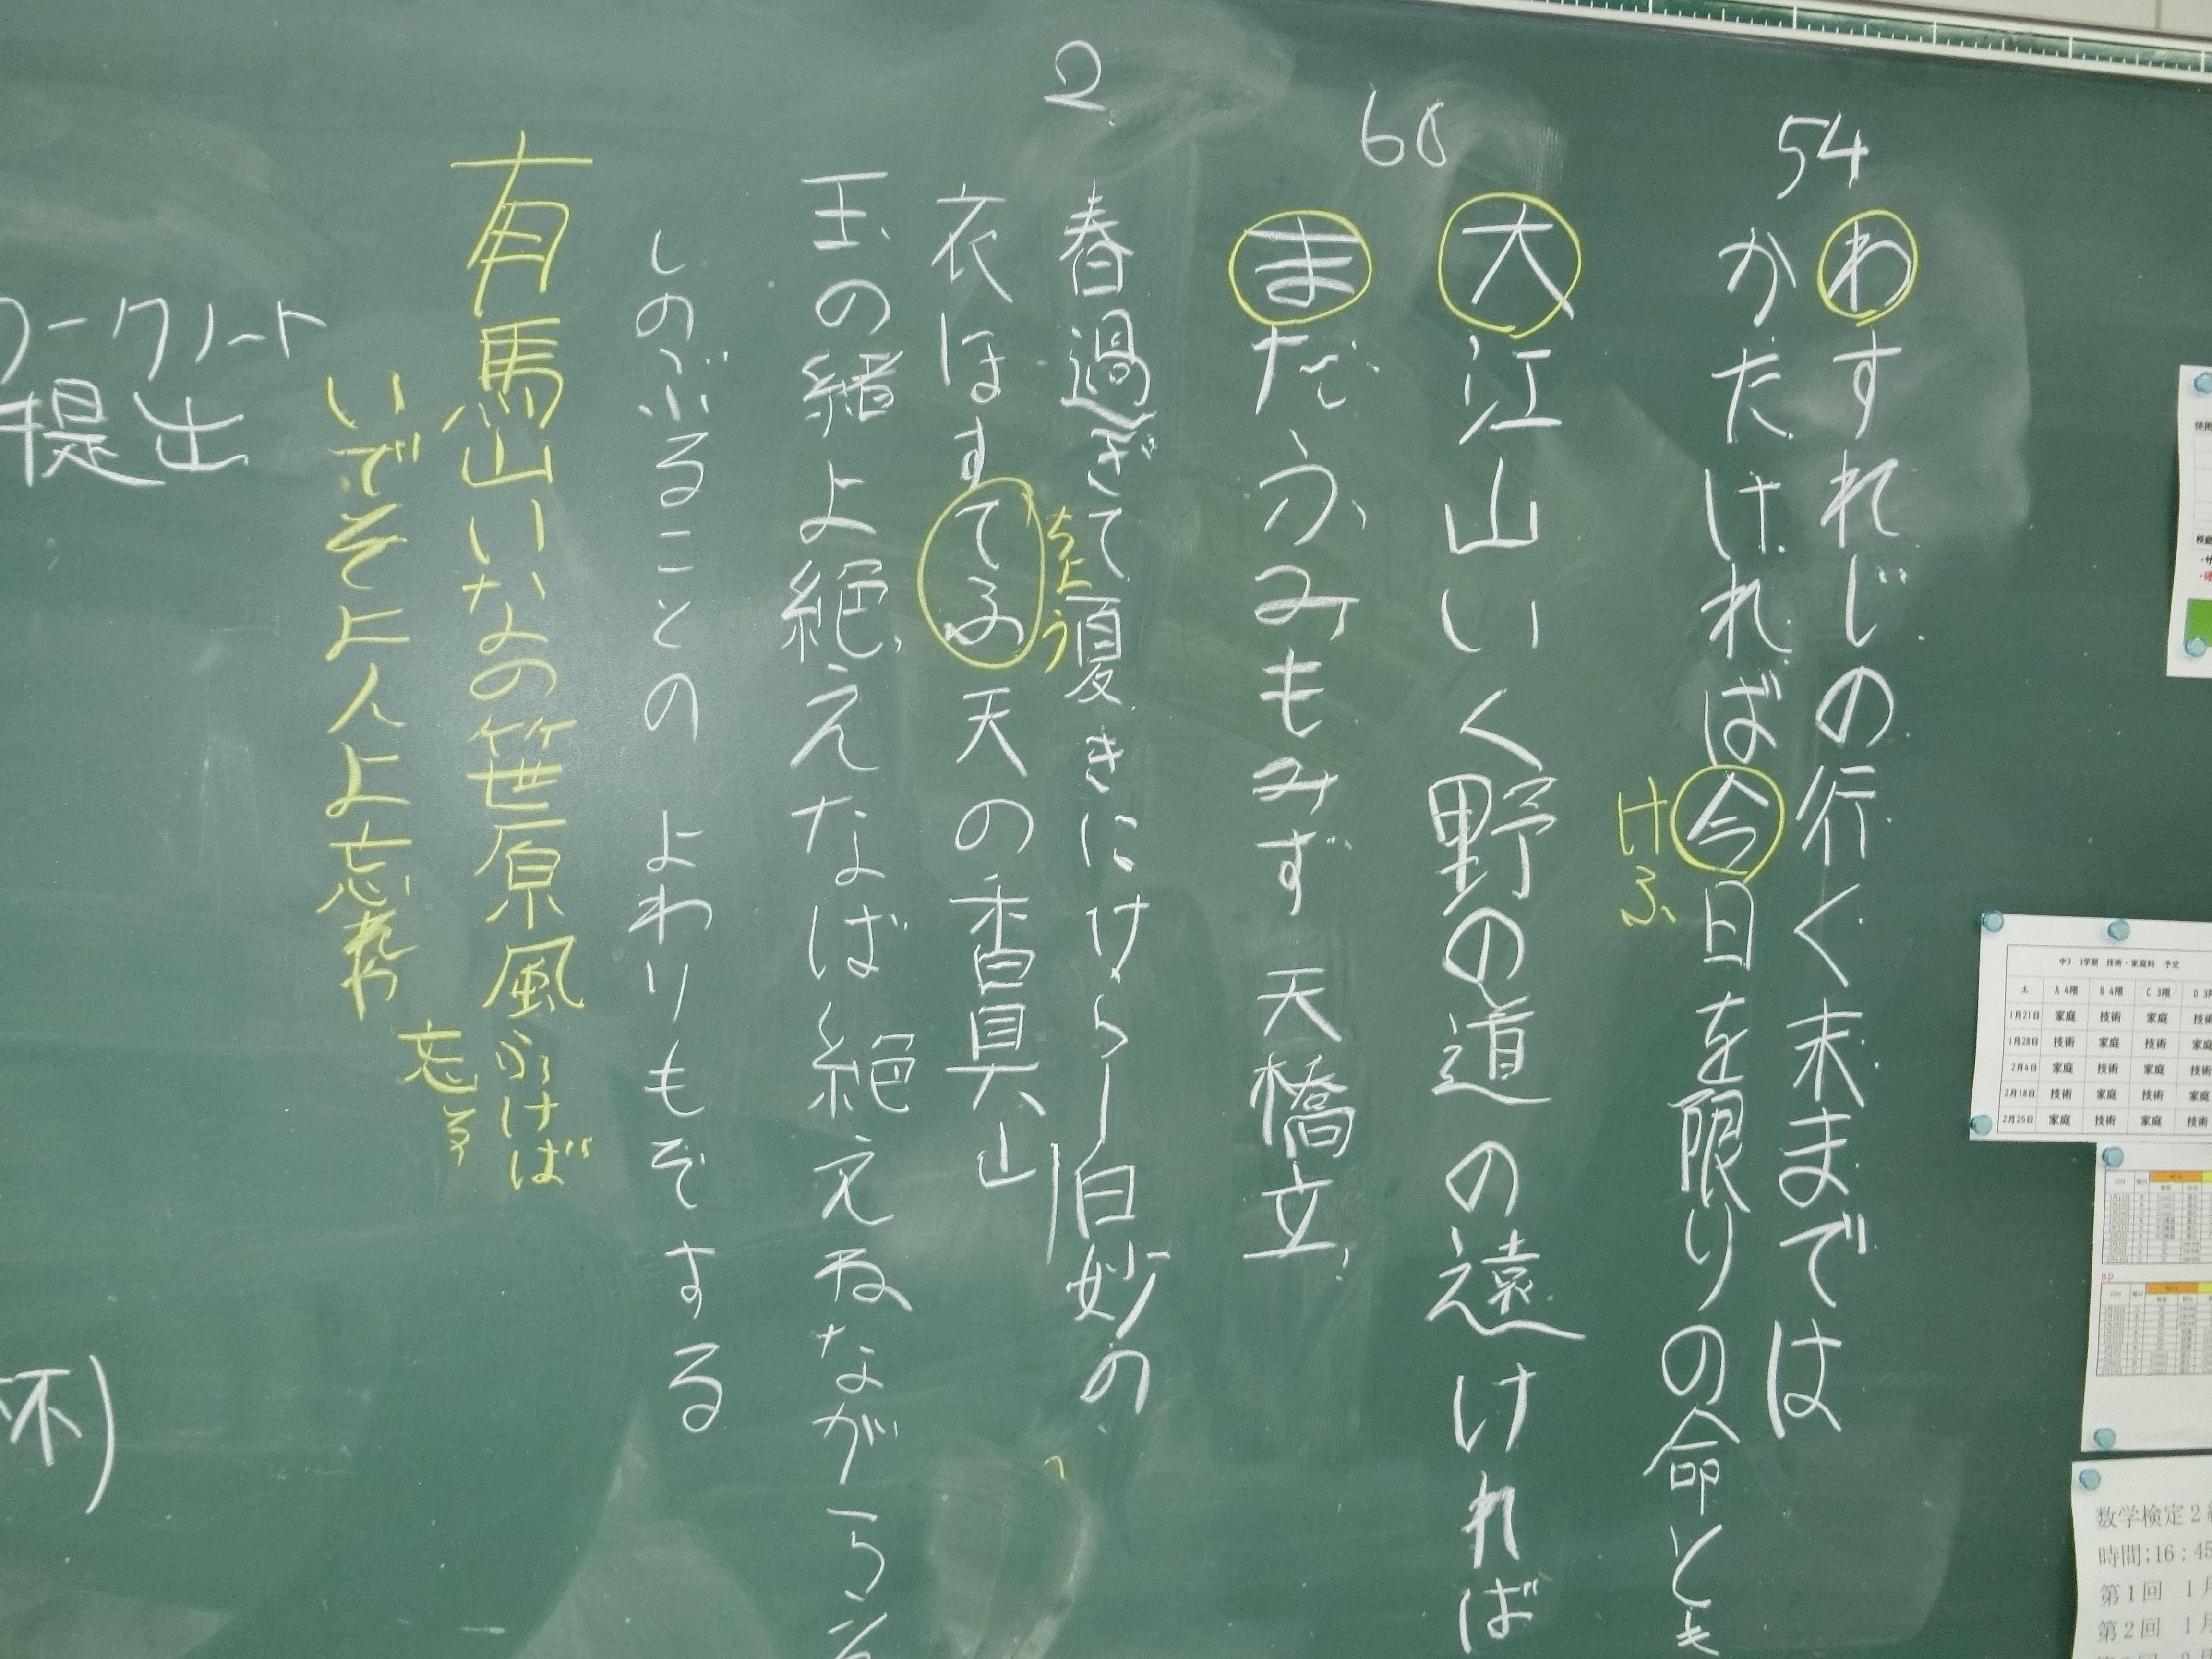 54
わすれじの行く末までは
かたければ今日を限りの命とも
けふ
60
大江山いく野の道の遠ければ
まだふみもみず天橋立
2
春過ぎて夏きにけらし白妙の
ちょう
衣ほすてふ天の香具山
玉の緒よ絶えなば絶えねながらへ
しのぶることのよわりもぞする
有馬山いなの笹原風ふけば
忘る
いでそよ人よ忘れ
ワークノート
提出
中3 3学期 技術・家庭科 予定
土 A 4限 B 4限 C 3限 D 3限
1月21日 家庭 技術 家庭 技術
1月28日 技術 家庭 技術 家庭
2月4日 家庭 技術 家庭 技術
2月18日 技術 家庭 技術 家庭
2月25日 家庭 技術 家庭 技術
数学検定2級
時間;16:45
第1回 1月
第2回 1月